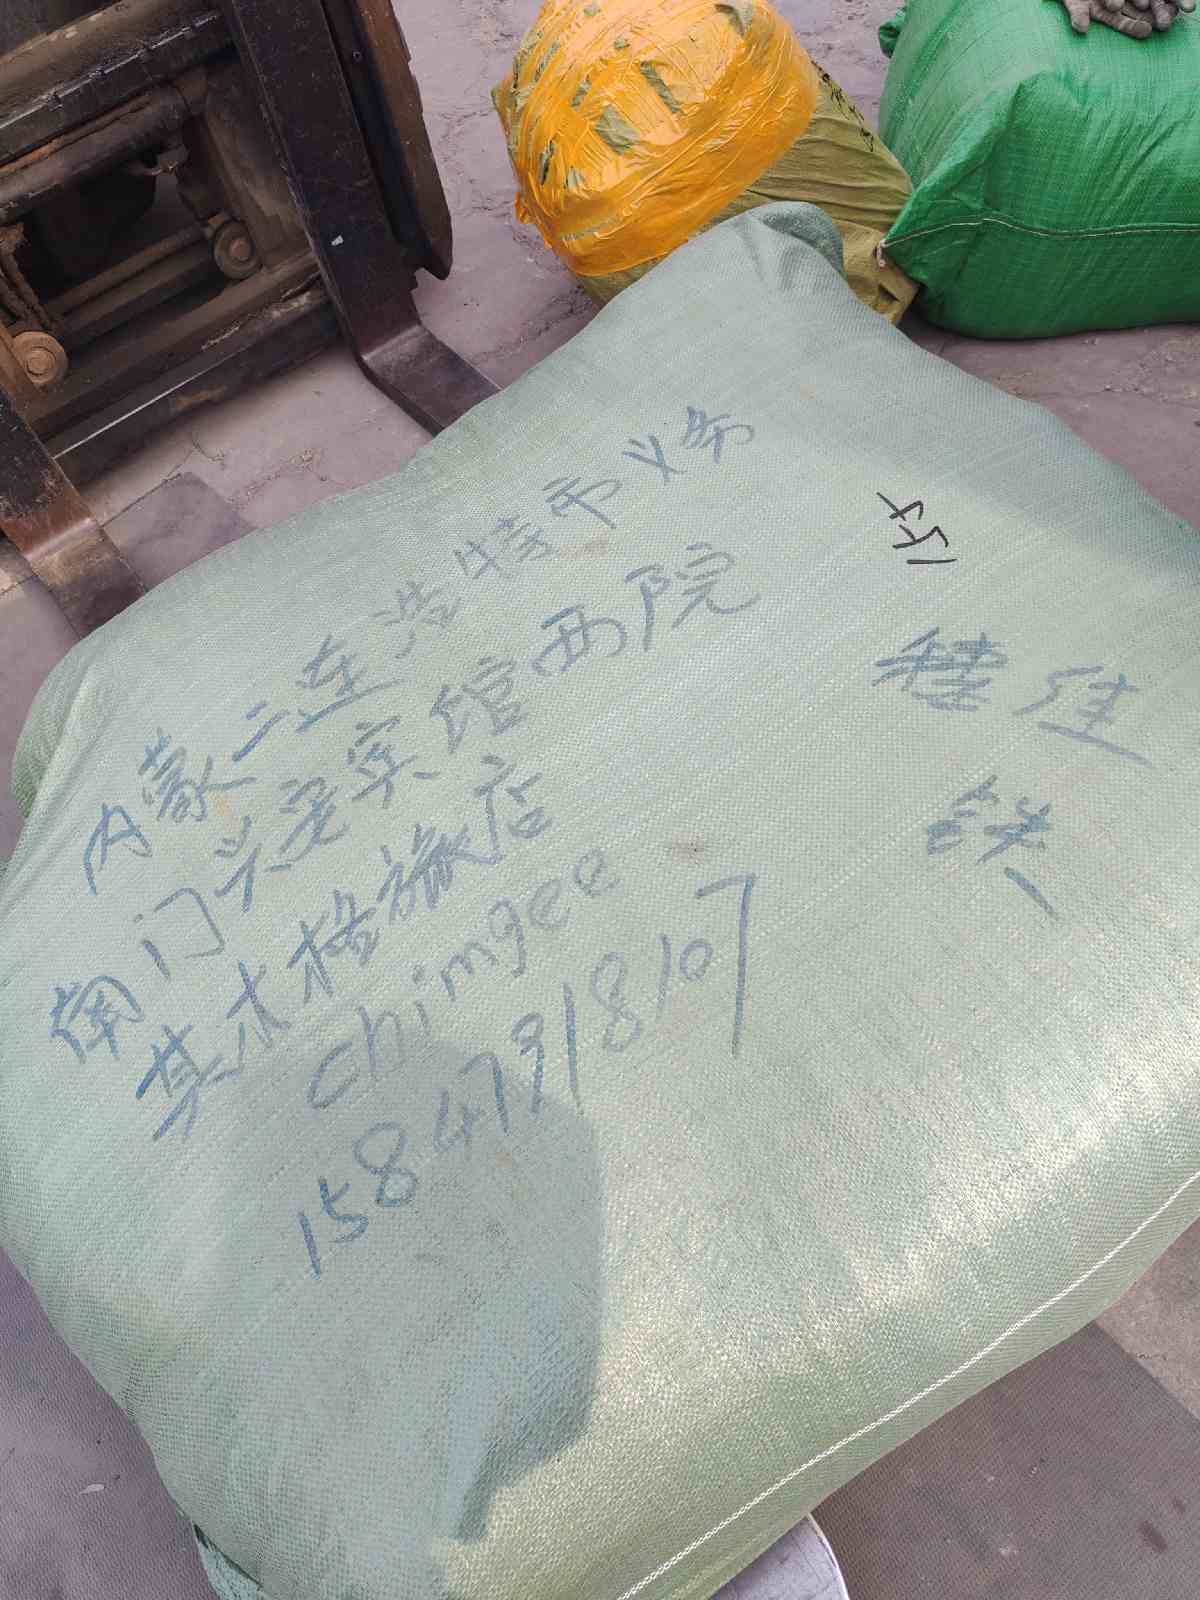 内蒙二连浩特市义乌
南门头安宾馆西院
其木格旅店
chimgee
15847318107